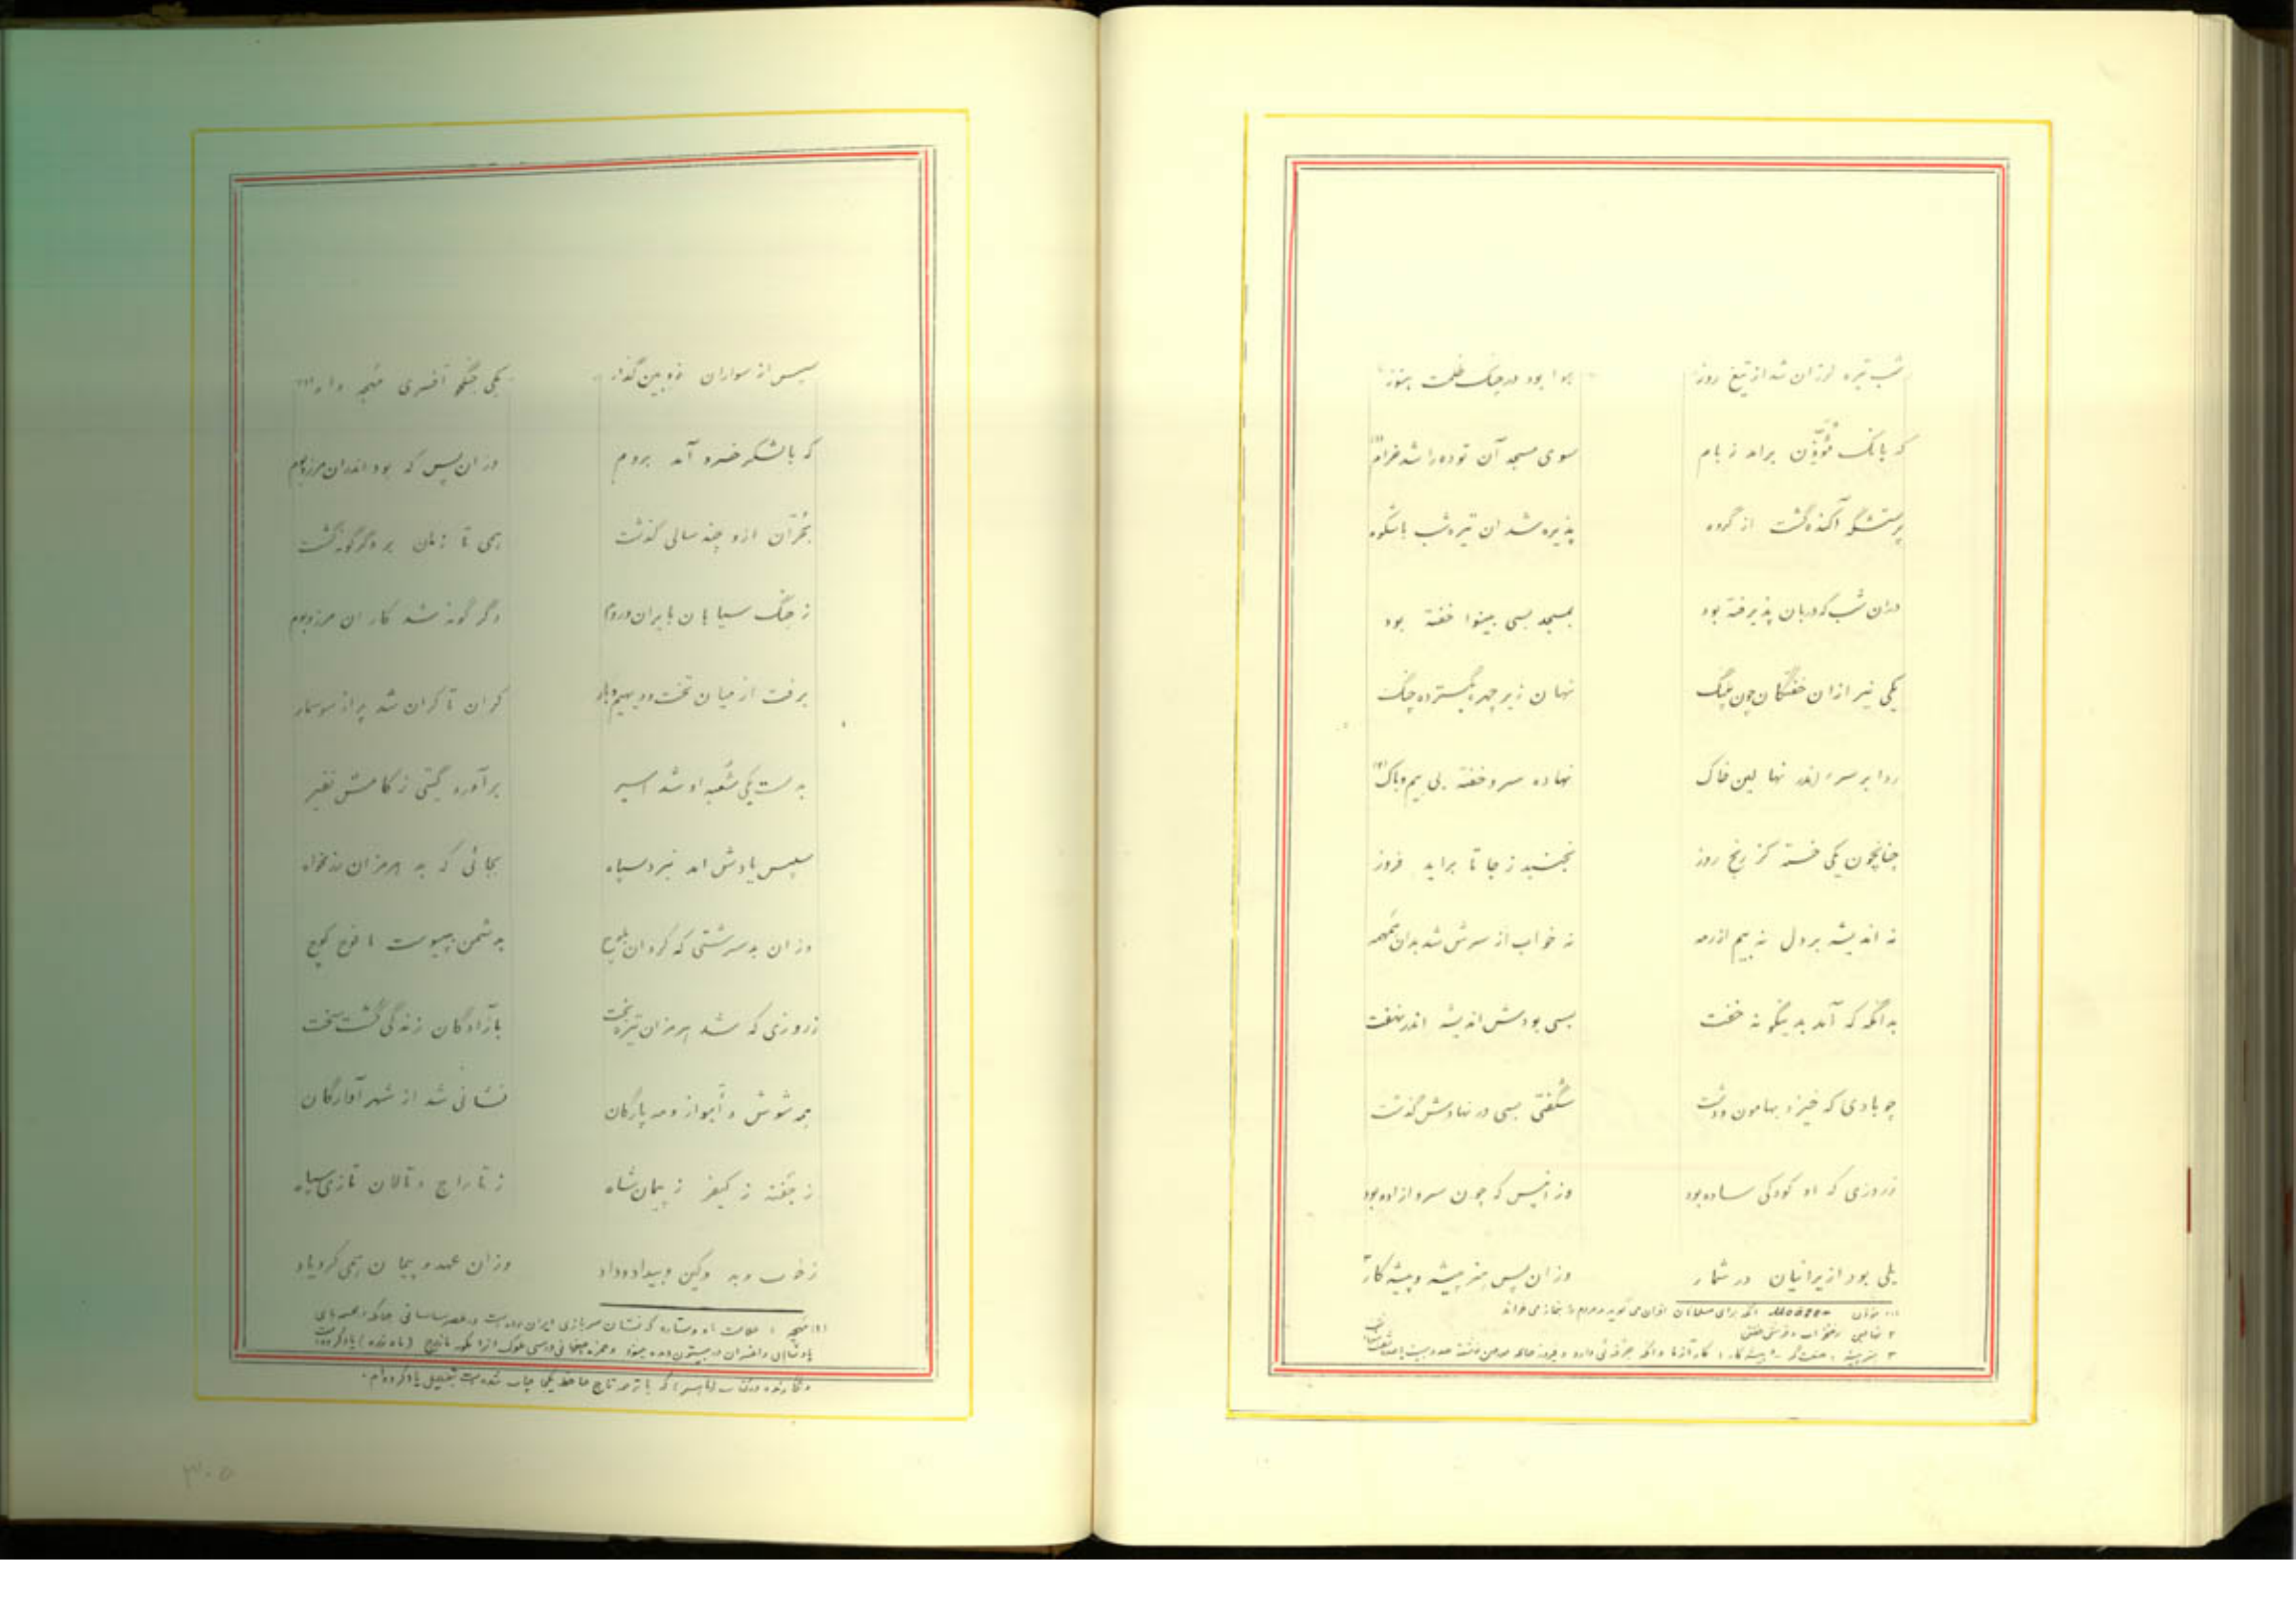 شب تیره لرزان شد از تیغ روز هوا بود در چنگ ظلمت هنوز
که بانگ مؤذن برامد ز بام سوی مسجد آن توده را شد خرام (۱)
پرستشگه آکنده گشت از گروه پذیره شد ان تیره شب باشکوه
دران شب که دربان پذیرفته بود بمسجد بسی بینوا خفته بود
یکی نیز ازان خفتگان چون پلنگ نهان زیر چهره بگسترده چنگ
ردا بر سر و اندر نهالین خاک نهاده سر و خفته بی بیم و باک (۲)
چنانچون یکی خسته کز رنج روز نجنبید ز جا تا براید فروز
نه اندیشه بر دل نه بیم از رمه نه خواب از سرش شد بدان همهمه
بدانگه که آمد بدینگونه خفت بسی بودش اندیشه اندر نهفت
چو بادی که خیزد بهامون و دشت شگفتی بسی در نهادش گذشت
ز روزی که او کودکی ساده بود وز انپس که چون سرو ازاده بود
یلی بود از یرانیان در شمار وزان پس هنر پیشه و پیشه کار
(۱) مؤذن Moazen انکه برای مسلمانان اذان می گوید و مردم را بنماز می خواند
۲ نهالین رختخواب و فرش خفتن
۳ هنر پیشه : صنعتگر - پیشه کار : کار آزما و انکه حرفه ئی دارد
سپس از سواران ژوبین گذار یکی جنگجو افسری منجه دار (۱)
که با لشکر خسرو آمد بروم وزان پس که بود اندران مرز و بوم
بخرآن ازو چند سالی گذشت همی تا زمان بر دگرگونه گشت
ز جنگ سپاهان بایران و روم دگر گونه شد کار ان مرز و بوم
برفت از میان تخت و دیهیم و بار کران تا کران شد پر از سوسمار
بدست یکی شعبه او شد اسیر برآورد گیتی ز کامش نفیر
سپس یادش امد نبرد سپاه بجائی که بد هرمزان رزمخواه
وزان بد سرشتی که گردان بلوچ بدشمن بپیوست با فوج کوچ
ز روزی که شد هرمزان تیره بخت بآزادگان زندگی گشت سخت
همه شوش و أهواز و مه پارگان نشانی شد از شهر آوارگان
ز جفینه ز کیفر ز پیمان شاه ز تاراج و تالان تازی سپاه
ز خوب و بد و کین و بیداد و داد وزان عهد و پیمان همی کرد یاد
(۱) منجه : علامت ماه و ستاره که نشان سربازی ایران بوده است در عصر ساسانی
پادشاهان و افسران در بیستون دیده میشود و حمزه اصفهانی در سنی ملوک انرا
و نگارنده در کتاب که با ترجمه تاج جاحظ یکجا چاپ شده است بتفصیل یاد کرده ام .
۳۰۵